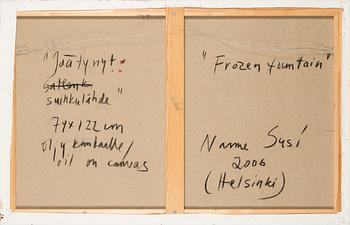 "Jäätynyt
suihkulähde"
74x122 cm
öljy kankaalle/
oil on canvas
"Frozen fountain"
Nanne Susi
2006
(Helsinki)